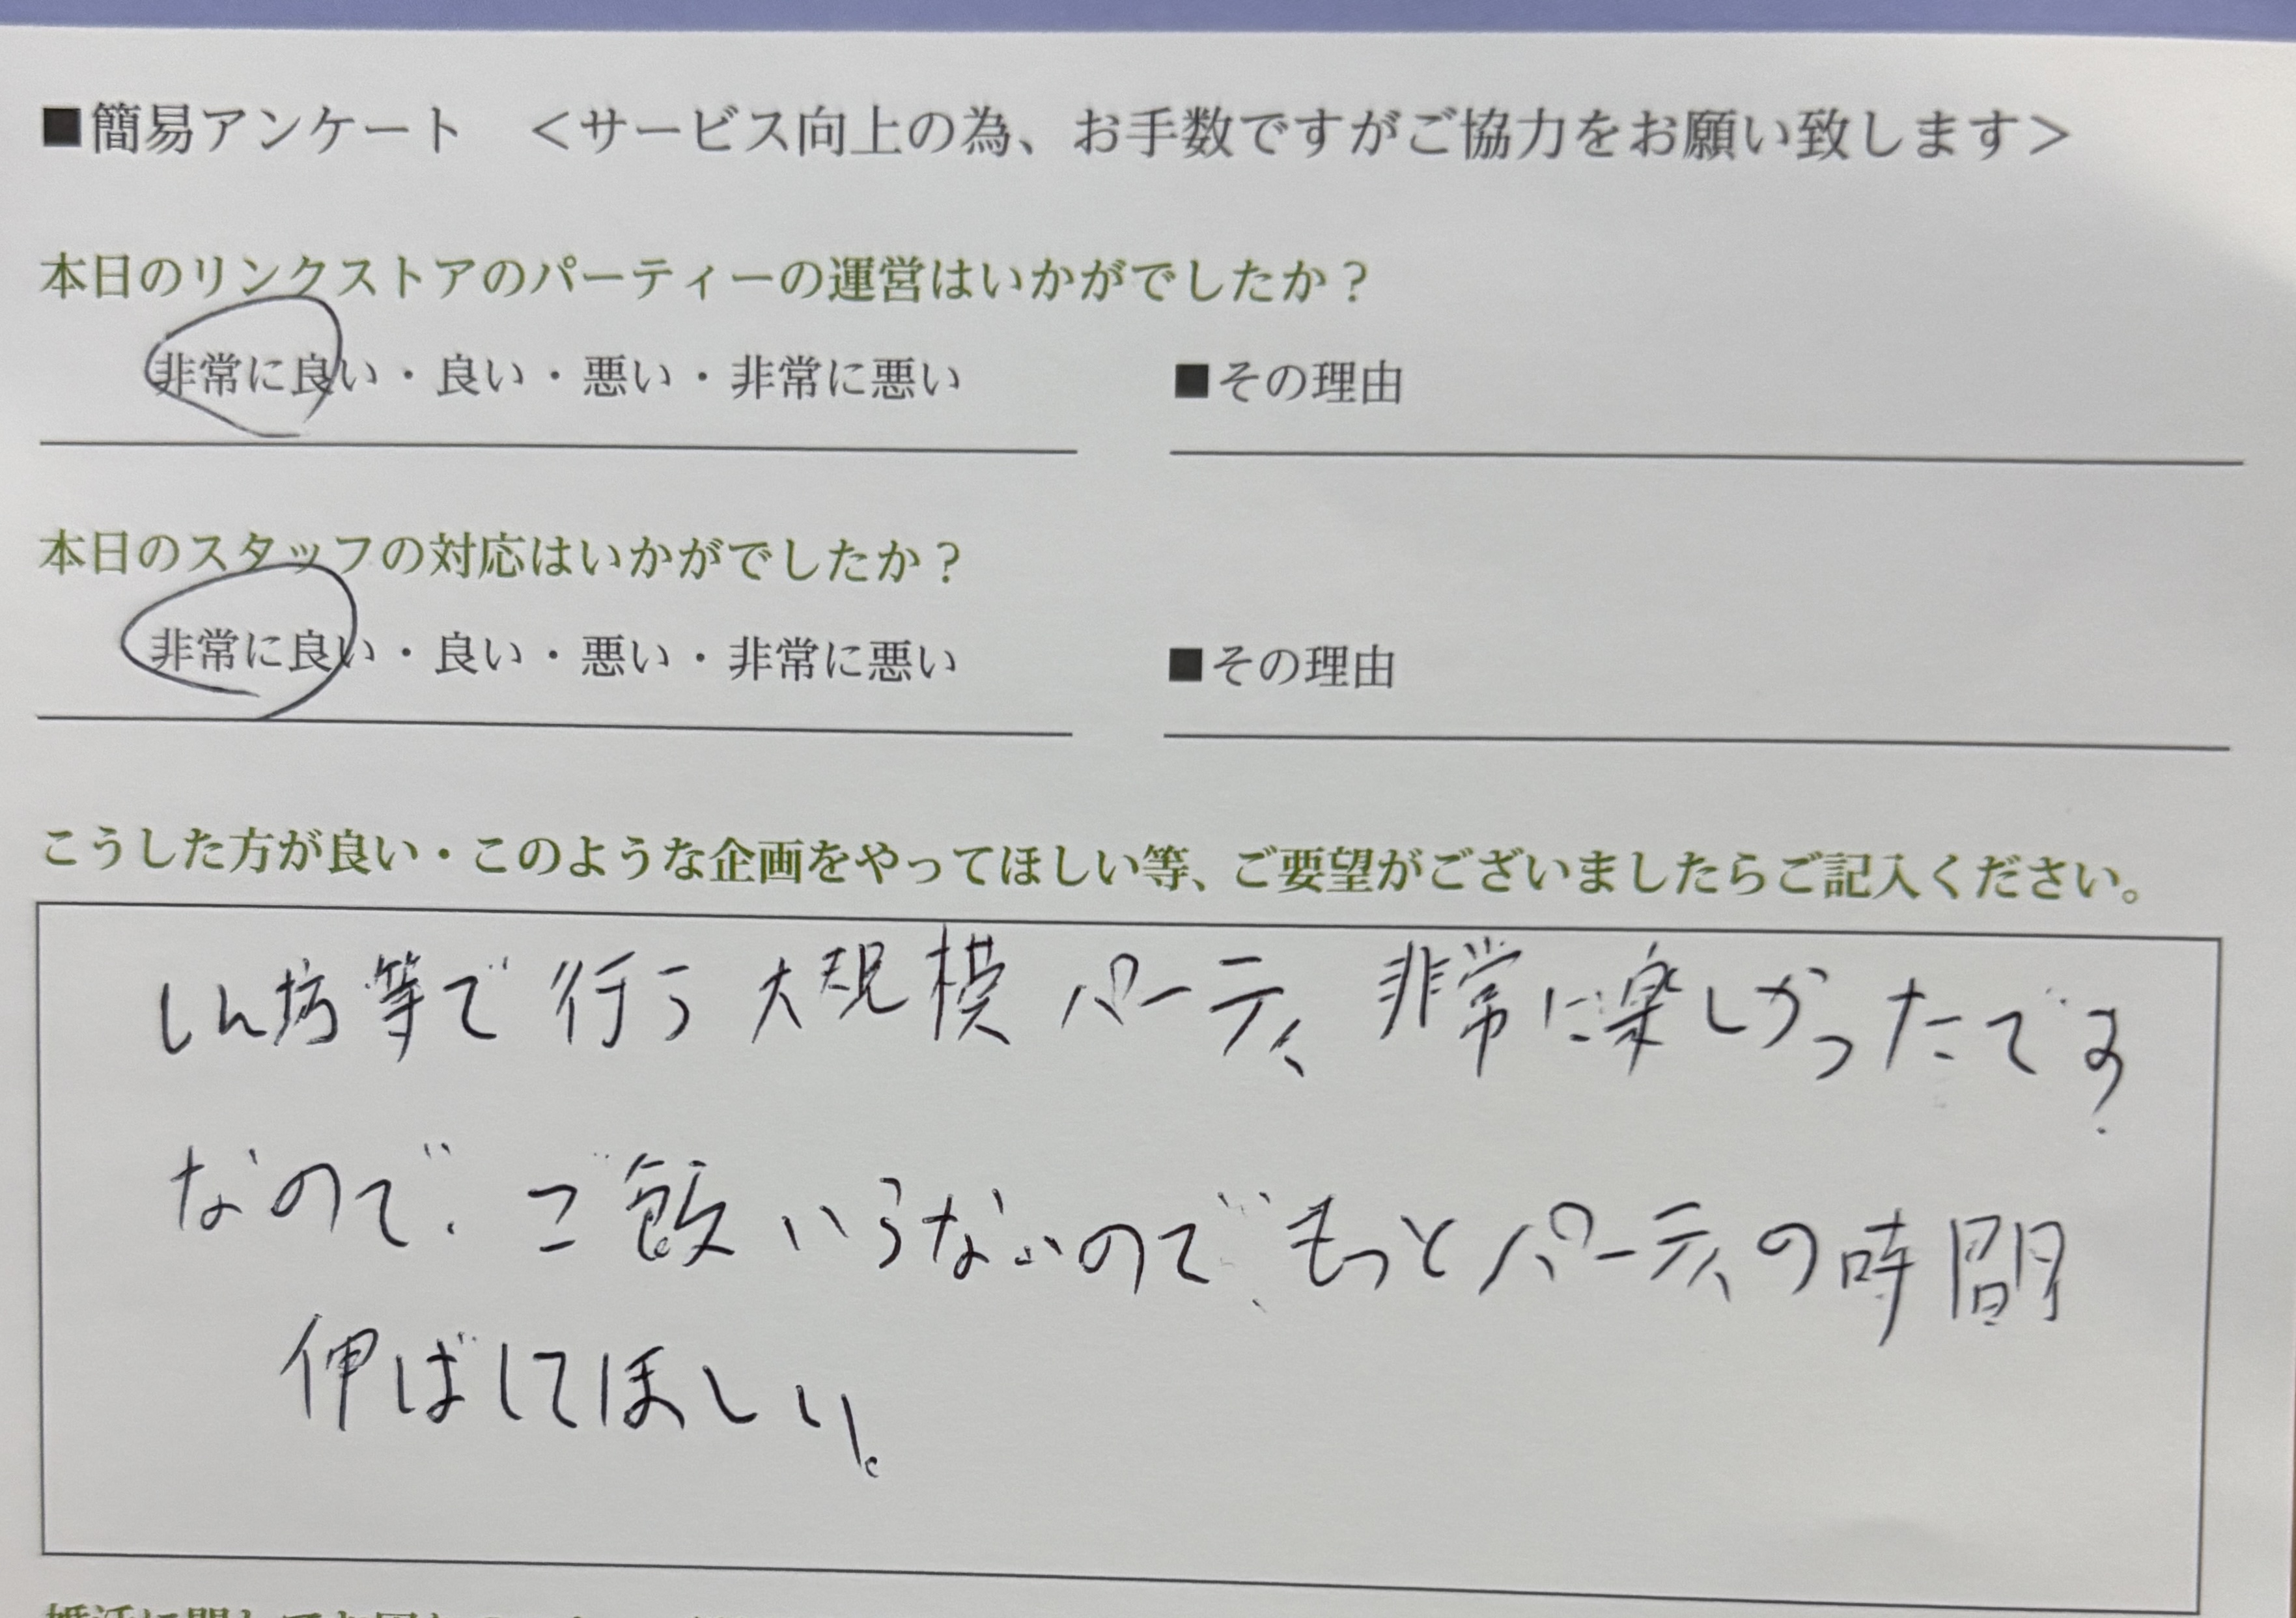 ■簡易アンケート　＜サービス向上の為、お手数ですがご協力をお願い致します＞
本日のリンクストアのパーティーの運営はいかがでしたか？
非常に良い・良い・悪い・非常に悪い　■その理由
本日のスタッフの対応はいかがでしたか？
非常に良い・良い・悪い・非常に悪い　■その理由
こうした方が良い・このような企画をやってほしい等、ご要望がございましたらご記入ください。
しん坊等で行う大規模パーティ、非常に楽しかったです.
なので、ご飯いらないので、もっとパーティの時間
伸ばしてほしい。